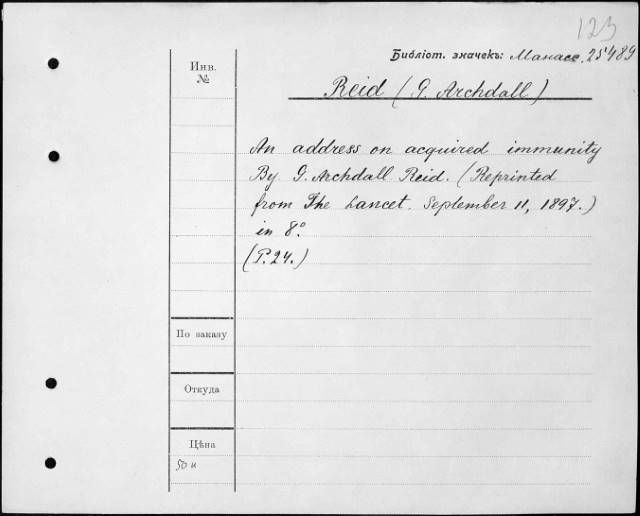 123
Библіот. значекъ: Манасс. 25489
Инв.
№
Reid (G. Archdall)
An address on acquired immunity
By G. Archdall Reid. (Reprinted
from The Lancet. September 11, 1897.)
in 8°.
(P. 24.)
По заказу
Откуда
Цѣна
50 к